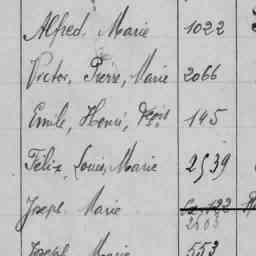 Alfred, Marie 1022
Victor, Pierre, Marie 2066
Emile, Henri, 145
Félix, Louis, Marie 2539
Joseph Marie
2503
Joseph Marie 553